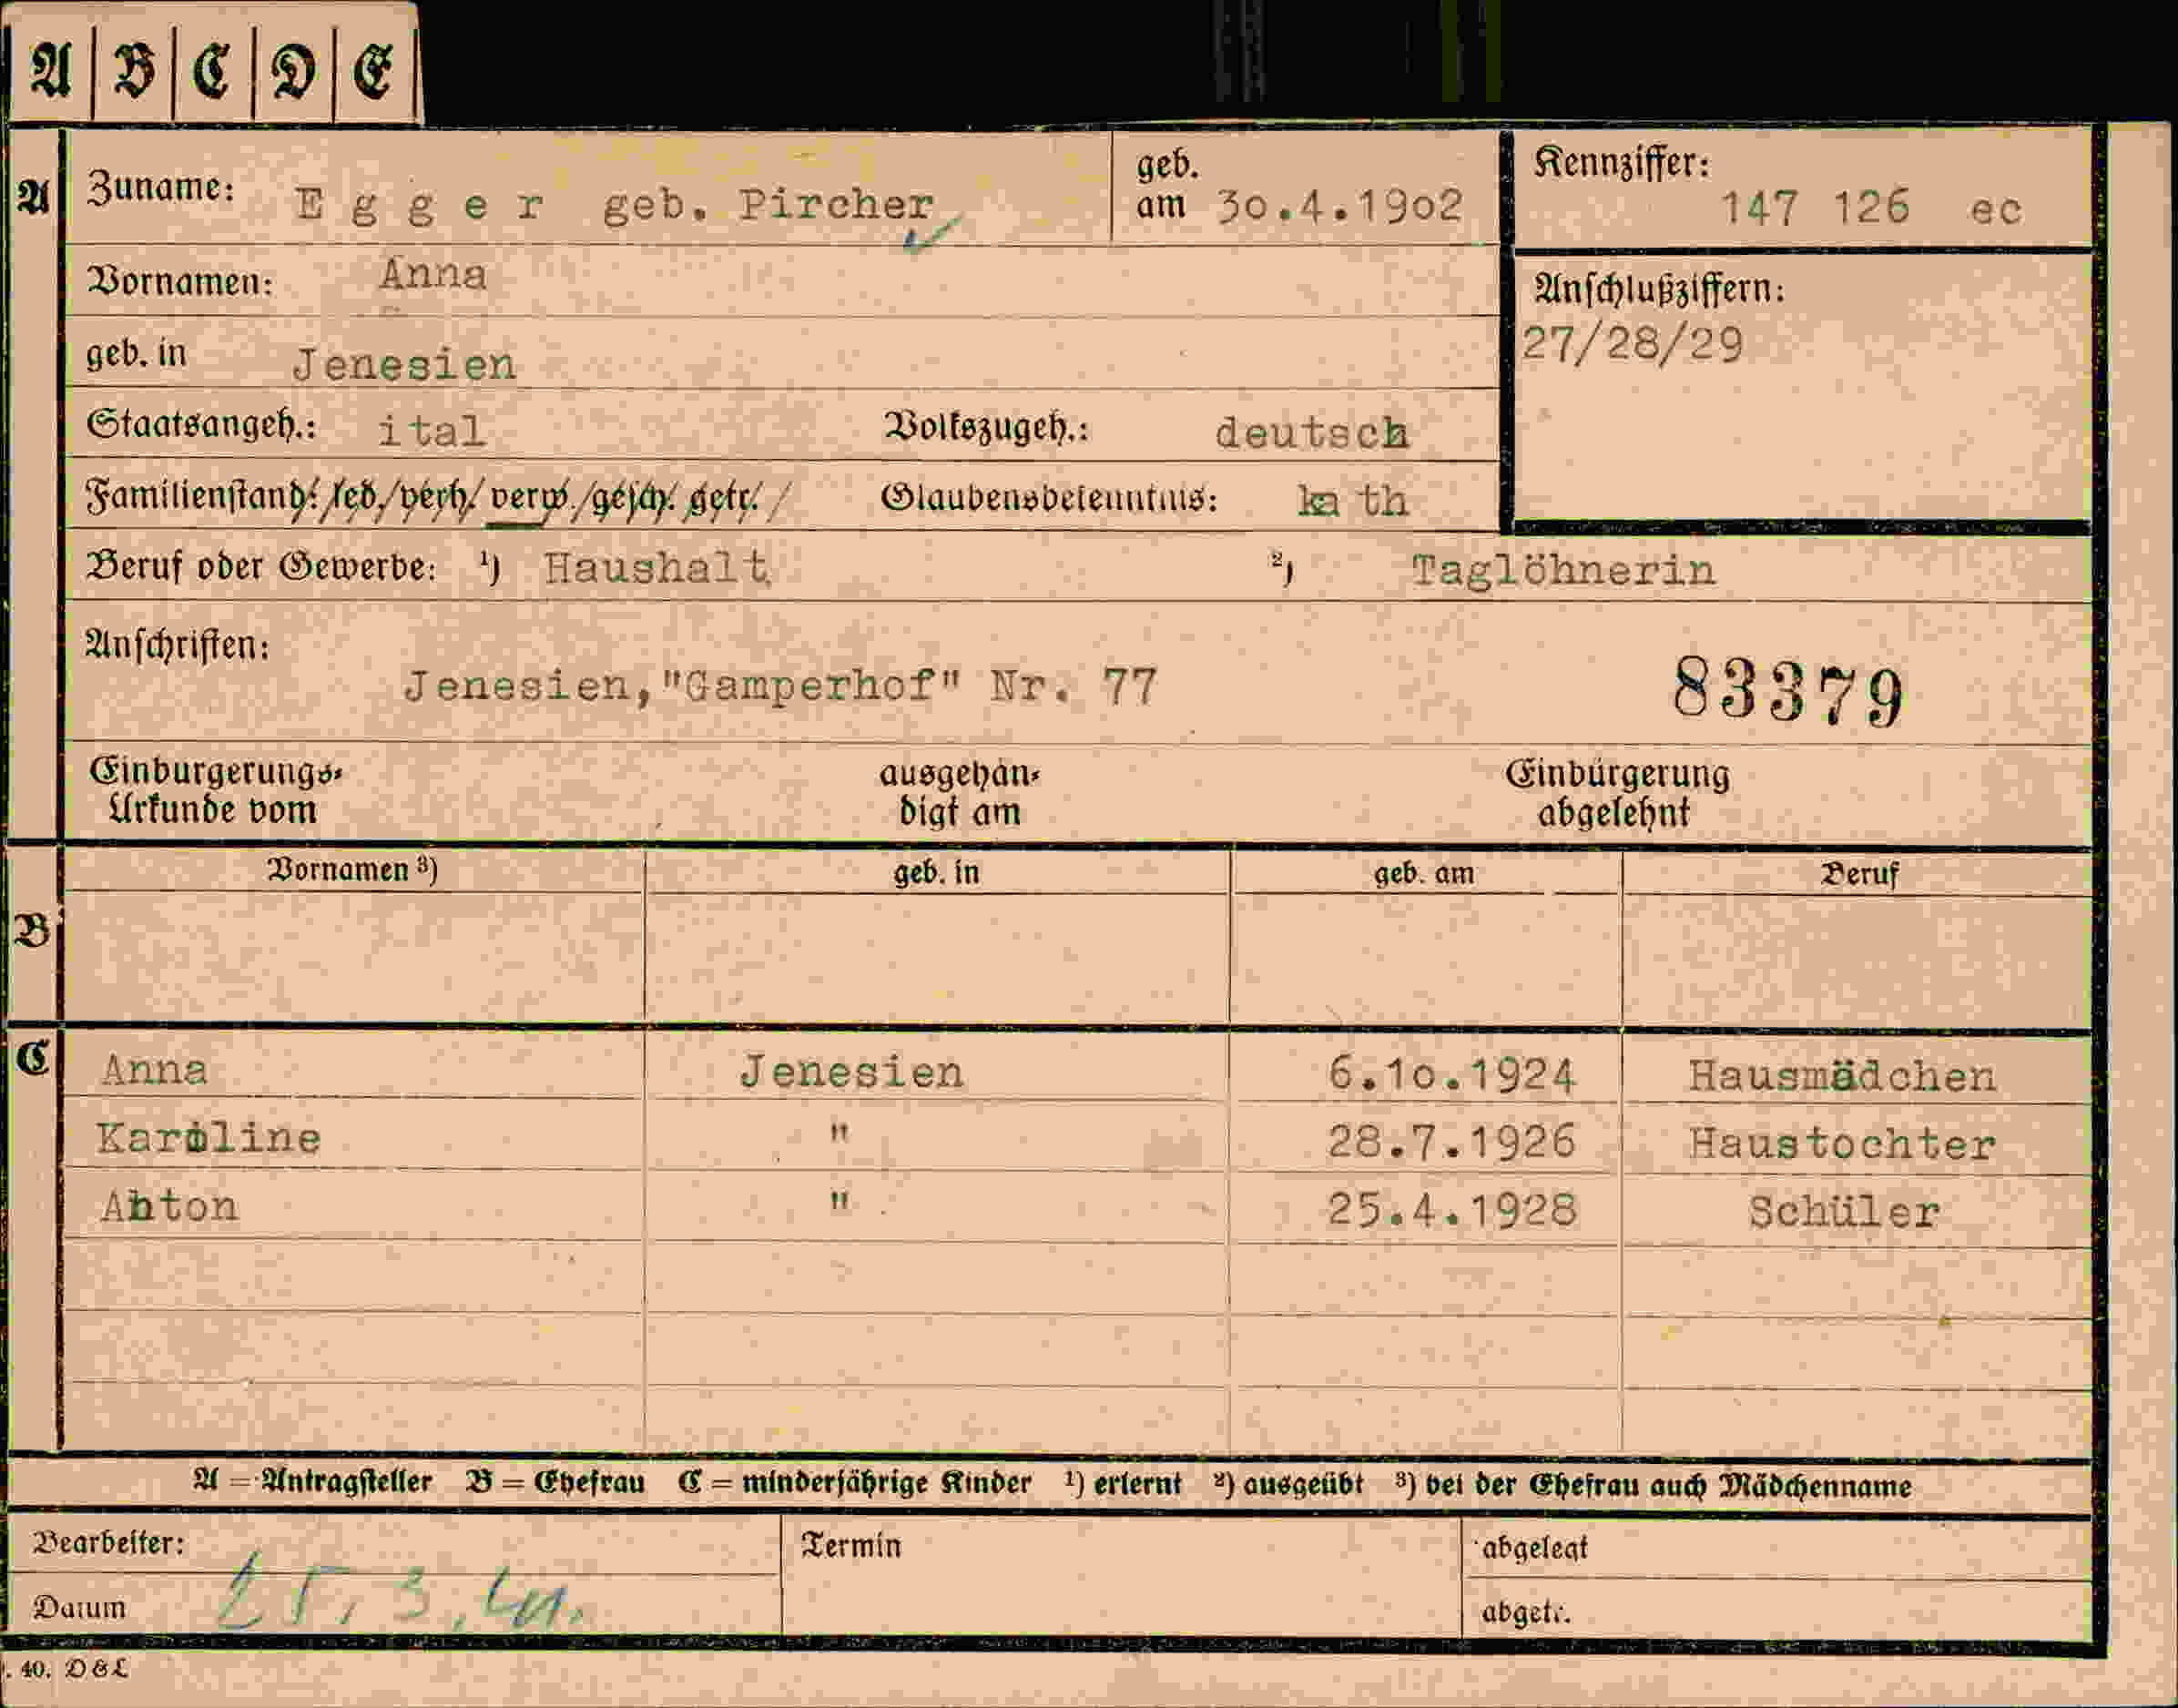 A B C D E
A Zuname: E g g e r geb. Pircher geb. am 30.4.1902 Kennziffer: 147 126 ec
Vornamen: Anna
Anschlußziffern:
27/28/29
geb. in Jenesien
Staatsangeh.: ital Volkszugeh.: deutsch
Familienstand: led./verh./verw./gesch. getr. Glaubensbekenntnis: ka th
Beruf oder Gewerbe: ¹) Haushalt ²) Taglöhnerin
Anschriften:
Jenesien,"Gamperhof" Nr. 77
83379
Einbürgerungs-
Urkunde vom
ausgehän-
digt am
Einbürgerung
abgelehnt
Vornamen ³) geb. in geb. am Beruf
B
C Anna Jenesien 6.10.1924 Hausmädchen
Karoline " 28.7.1926 Haustochter
Anton " 25.4.1928 Schüler
A = Antragsteller B = Ehefrau C = minderjährige Kinder ¹) erlernt ²) ausgeübt ³) bei der Ehefrau auch Mädchenname
Bearbeiter: Termin abgelegt
Datum 25. 3. abgetr.
. 40. D & L